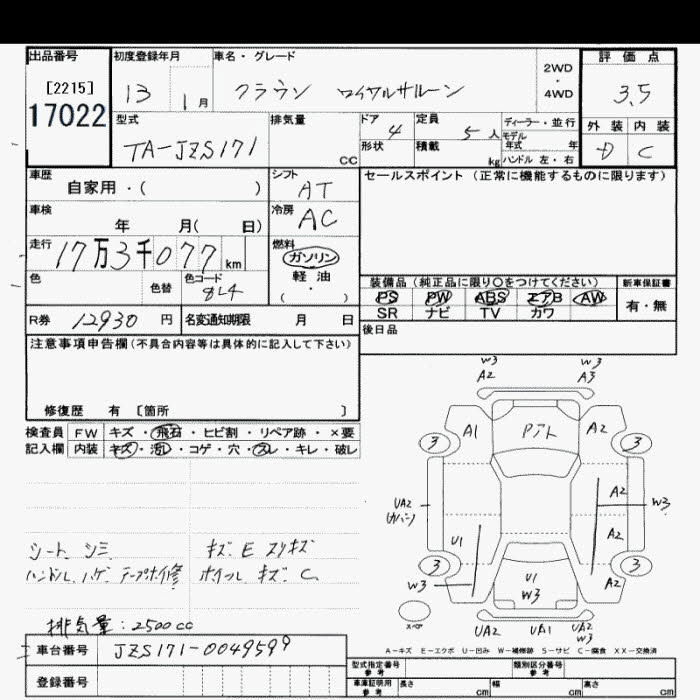 出品番号 初度登録年月 車名・グレード 2WD ・ 4WD 評価点
[2215]
17022
13 1月 クラウン ロイヤルサルーン 3.5
型式 排気量 ドア 4 定員 5人 ディーラー・並行 外装 内装
TA-JZS171 CC 形状 積載 kg モデル年式 年 D C
ハンドル 左・右
車歴 自家用・( ) シフト AT セールスポイント (正常に機能するものに限ります)
車検 年 月( 日) 冷房 AC
走行 17万3千077km 燃料 ガソリン
軽油
・
( )
色 色替 色コード 8L4
装備品 (純正品に限り○をつけてください) 新車保証書
PS PW ABS エアB AW 有・無
SR ナビ TV カワ
R券 12930円 名変通知期限 月 日 後日品
注意事項申告欄(不具合内容等は具体的に記入して下さい)
修復歴 有 [箇所 ]
検査員 FW キズ・飛石・ヒビ割・リペア跡・×要
記入欄 内装 キズ・汚れ・コゲ・穴・スレ・キレ・破レ
W3 W3
A2 A3
3 A1 Pアト A2 3
UA2 A2 W3
U1 A2
3 U1 3
W3 W3 A2
スペア UA2 UA1 UA2
W3
シート シミ キズ E スリキズ
ハンドル ハゲ テープホ修 ホイール キズ C
排気量:2500cc
A-キズ E-エクボ U-凹み W-補修跡 S-サビ C-腐食 XX-交換済
車台番号 JZS171-0049599
登録番号
型式指定番号 参考 類別区分番号 参考
車庫証明用 参考 長さ cm 幅 cm 高さ cm